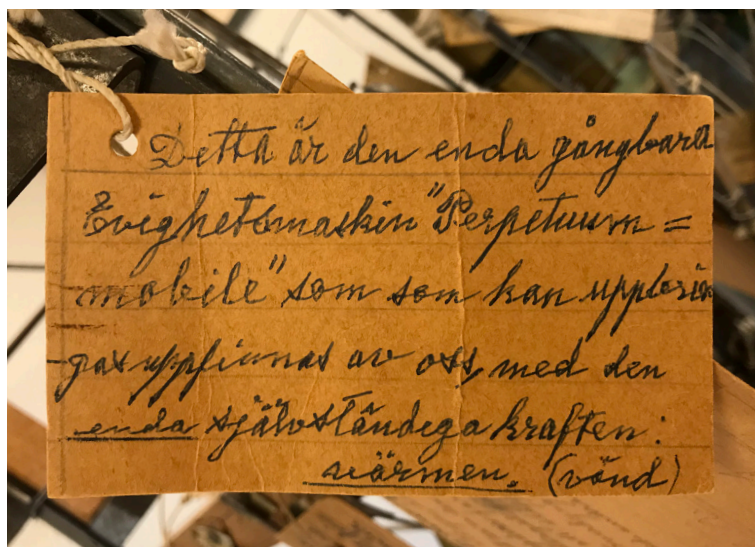 Detta är den enda gångbara
Evighetsmaskin "Perpetuum=
mobile" som som kan uppbrin
-gas uppfinnas av oss, med den
enda självständiga kraften:
värmen. (vänd)